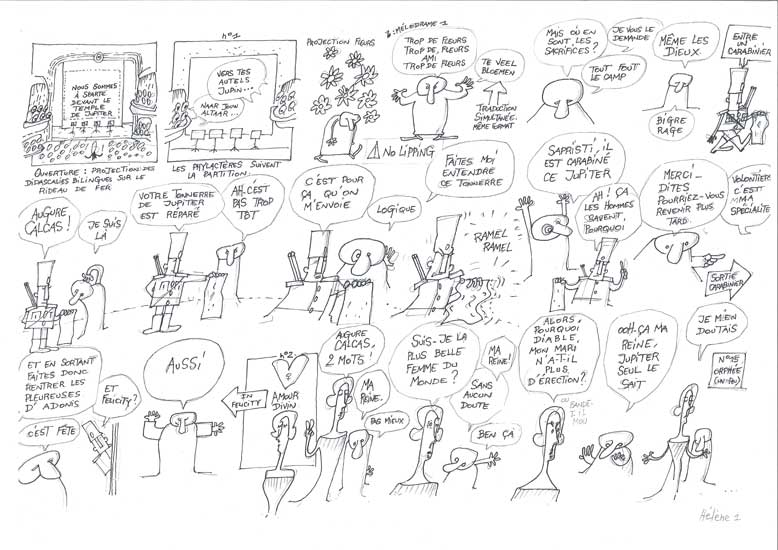 NOUS SOMMES
À SPARTE
DEVANT LE
TEMPLE
DE JUPITER
OUVERTURE : PROJECTION DES
DIDASCALIES BILINGUES SUR LE
RIDEAU DE FER
N°1
VERS TES
AUTELS
JUPIN...
NAAR JOUW
ALTAAR...
LES PHYLACTÈRES SUIVENT
LA PARTITION
PROJECTION FLEURS
MÉLODRAME 1
TROP DE FLEURS
TROP DE FLEURS
AMI
TROP DE FLEURS
TE VEEL
BLOEMEN
TRADUCTION
SIMULTANÉE.
MÊME FORMAT
NO LIPPING
MAIS OÙ EN
SONT LES
SACRIFICES?
JE VOUS LE
DEMANDE
TOUT FOUT
LE CAMP
MÊME LES
DIEUX.
BIGRE
RAGE
ENTRE
UN
CARABINIER
AUGURE
CALCAS!
JE SUIS
LÀ
VOTRE TONNERRE
DE JUPITER
EST REPARÉ
AH. C'EST
PAS TROP
TOT
C'EST POUR
ÇA QU'ON
M'ENVOIE
LOGIQUE
FAITES MOI
ENTENDRE
CE TONNERRE
RAMEL
RAMEL
SAPRISTI, IL
EST CARABINÉ
CE JUPITER
AH! ÇA
LES HOMMES
SAVENT
POURQUOI
MERCI_
DITES
POURRIEZ-VOUS
REVENIR PLUS
TARD.
VOLONTIERS
C'EST
MA
SPECIALITE
SORTIE
CARABINIER
ET EN SORTANT
FAITES DONC
RENTRER LES
PLEUREUSES
D'ADONIS
C'EST FÊTE
ET
FELICITY?
AUSSI
IN
FELICITY
N°2
AMOUR
DIVIN
AUGURE
CALCAS,
2 MOTS!
MA
REINE.
PAS MIEUX
SUIS-JE LA
PLUS BELLE
FEMME DU
MONDE?
MA
REINE!
SANS
AUCUN
DOUTE
BEN ÇA
ALORS,
POURQUOI
DIABLE,
MON MARI
N'A-T-IL
PLUS
D'ÉRECTION?
OU
BANDE-
T-IL
MOU
OOH. ÇA MA
REINE,
JUPITER
SEUL LE
SAIT
JE M'EN
DOUTAIS
ORPHÉE
Hélène 1